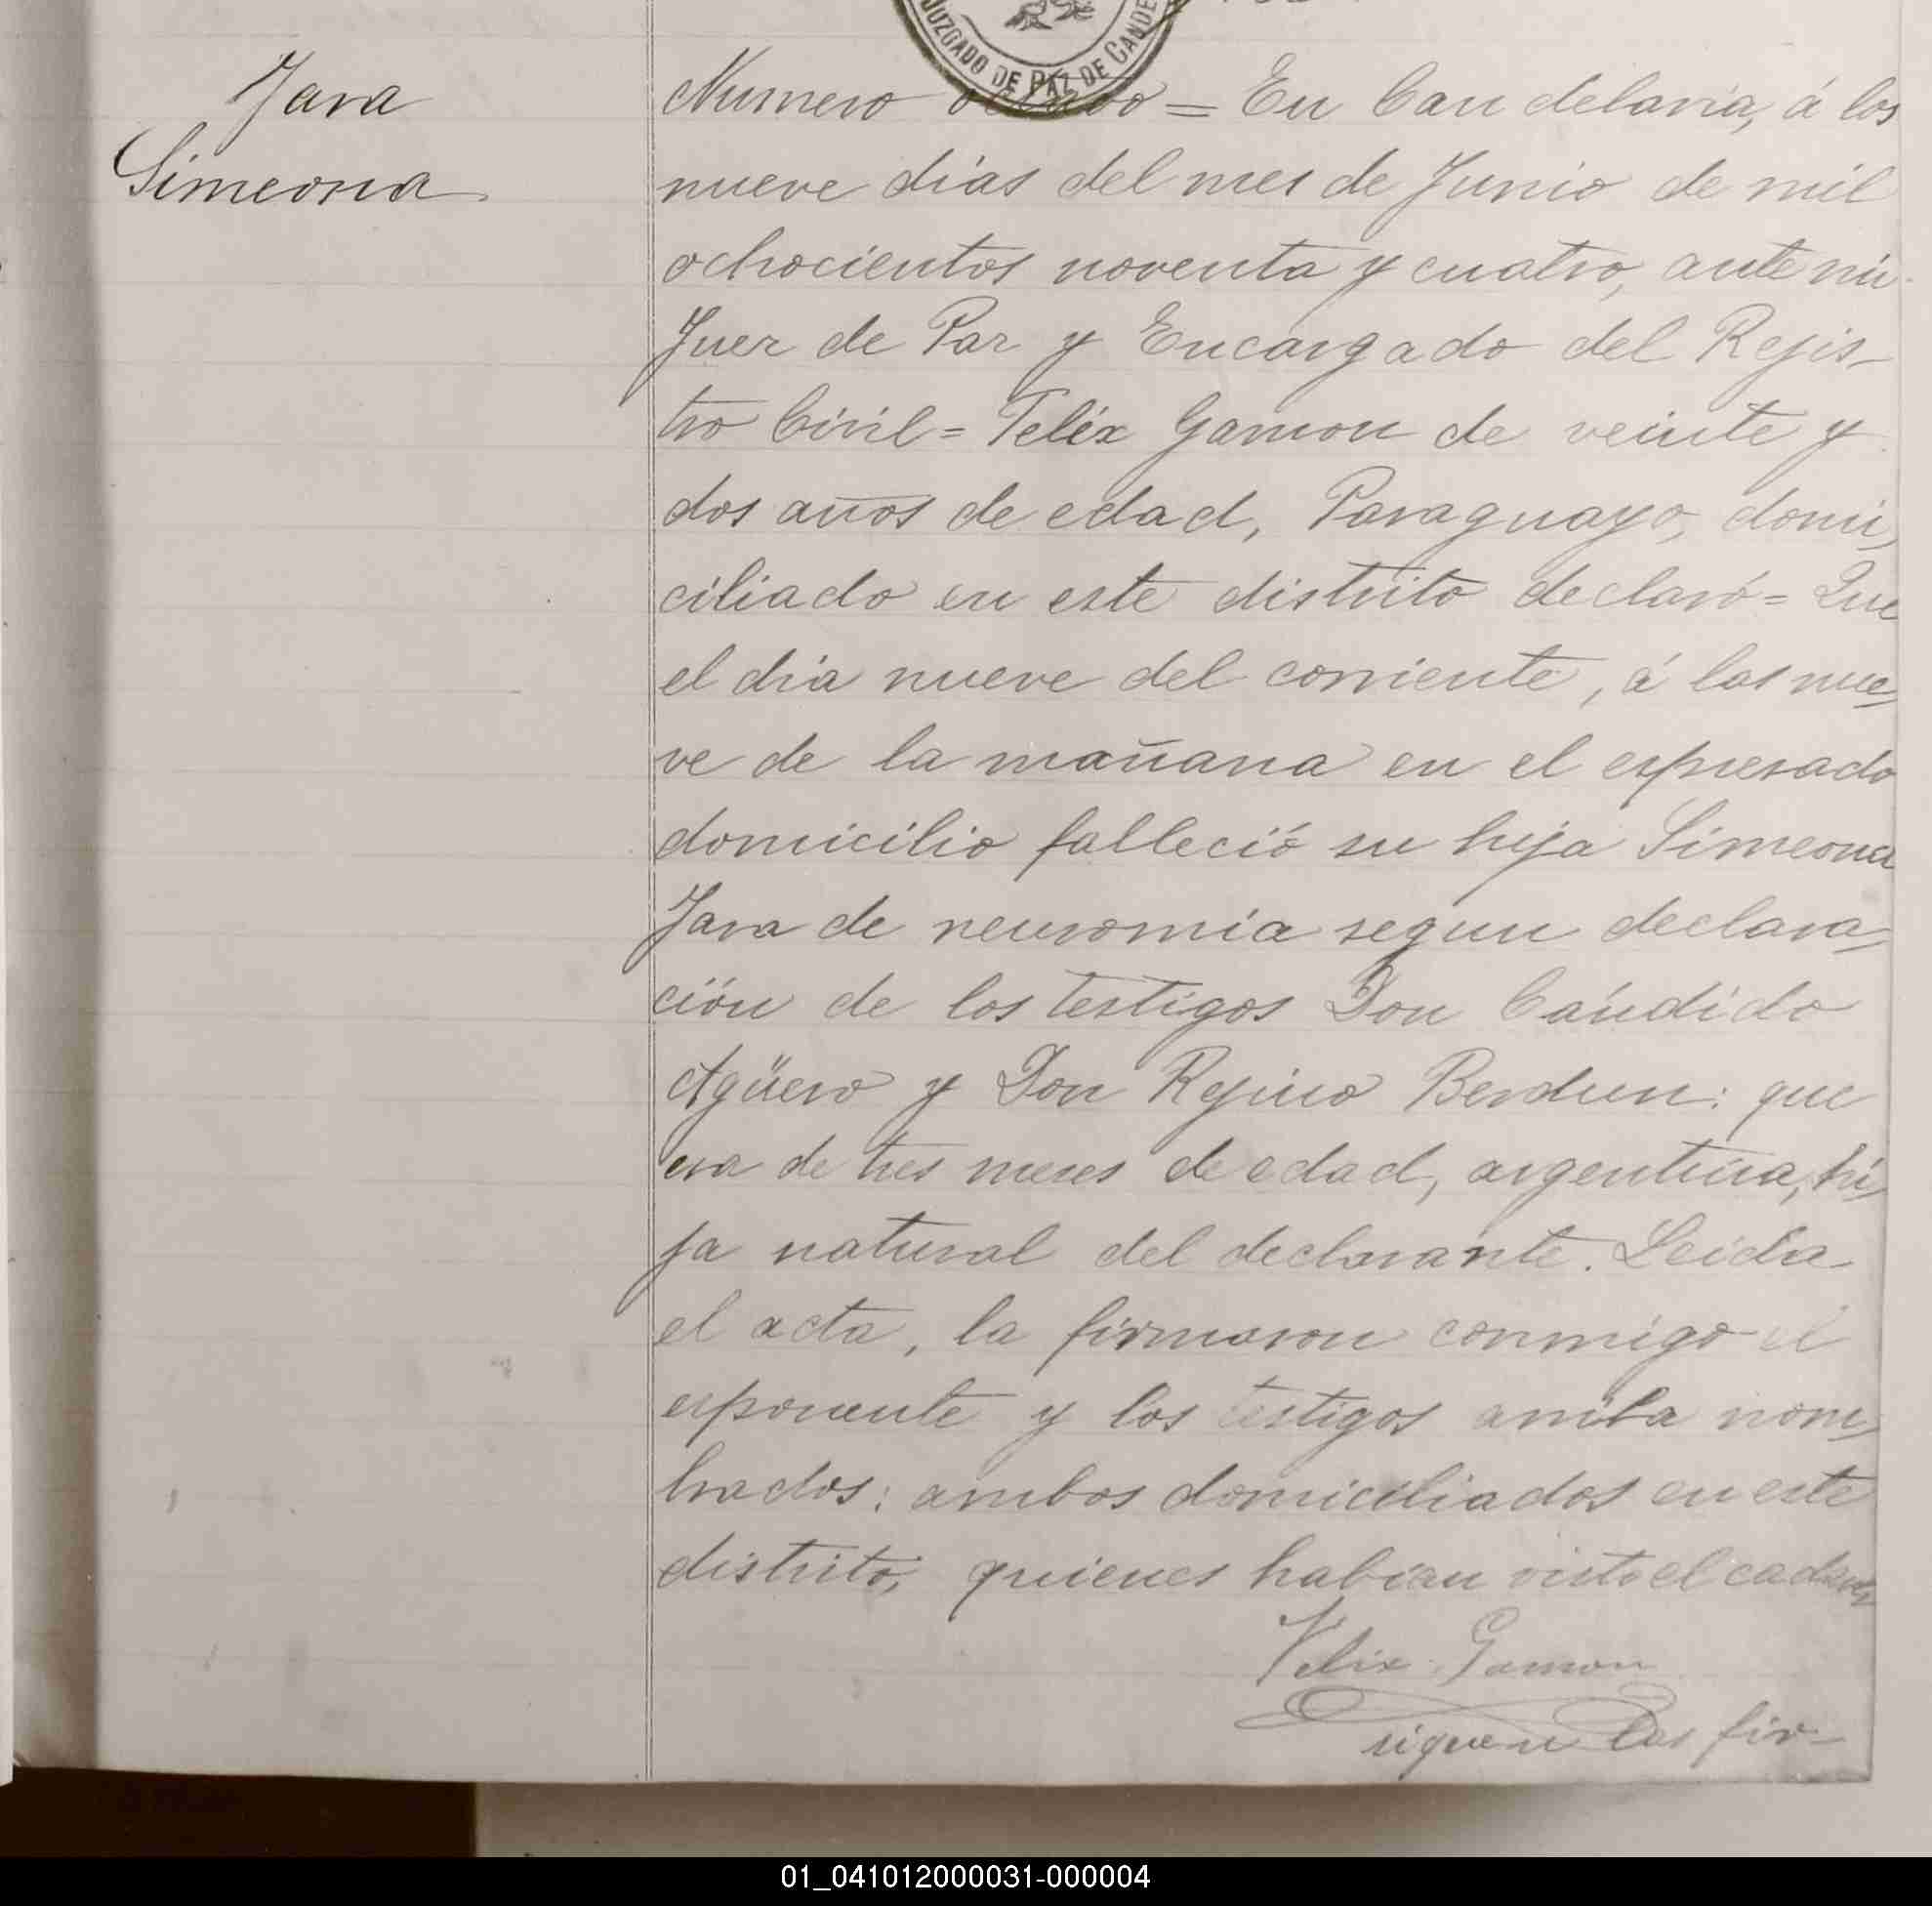 JUZGADO DE PAZ DE CANDE
Jara
Simeona
Numero = En Candelaria, á los
nueve dias del mes de Junio de mil
ochocientos noventa y cuatro, ante mi
Juez de Paz y Encargado del Rejis-
tro Civil = Felix Gamon de veinte y
dos años de edad, Paraguayo, domi,
ciliado en este distrito declaró = Que
el dia nueve del corriente, á las nue,
ve de la mañana en el espresado
domicilio falleció su hija Simeona
Jara de neuromia segun declara,
ción de los testigos Don Cándido
Agüero y Don Rejino Berdun: que
era de tres meses de edad, argentina, hi,
ja natural del declarante. Leida
el acta, la firmaron conmigo el
esponente y los testigos arriba nom,
brados: ambos domiciliados en este
distrito, quienes habian visto el cadaver
Felix Gamon
siguen las fir-
01_041012000031-000004